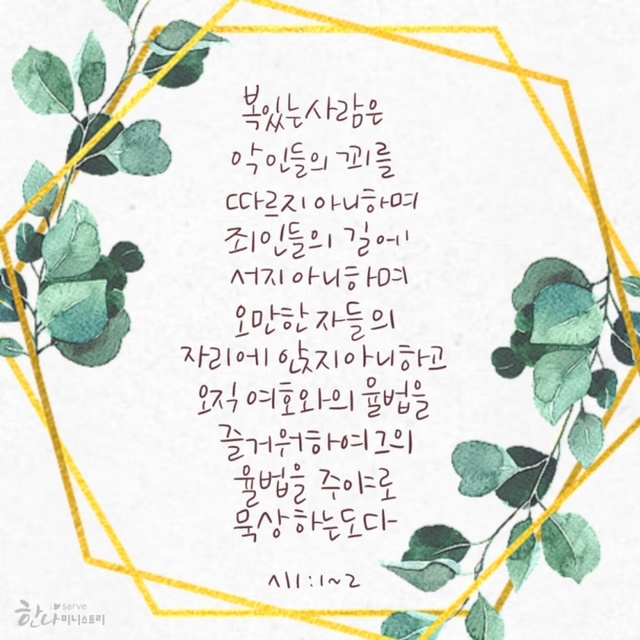 복있는사람은
악인들의 꾀를
따르지아니하며
죄인들의 길에
서지아니하며
오만한자들의
자리에 앉지아니하고
오직 여호와의 율법을
즐거워하여그의
율법을 주야로
묵상하는도다
시1:1~2
i serve
한나미니스트리